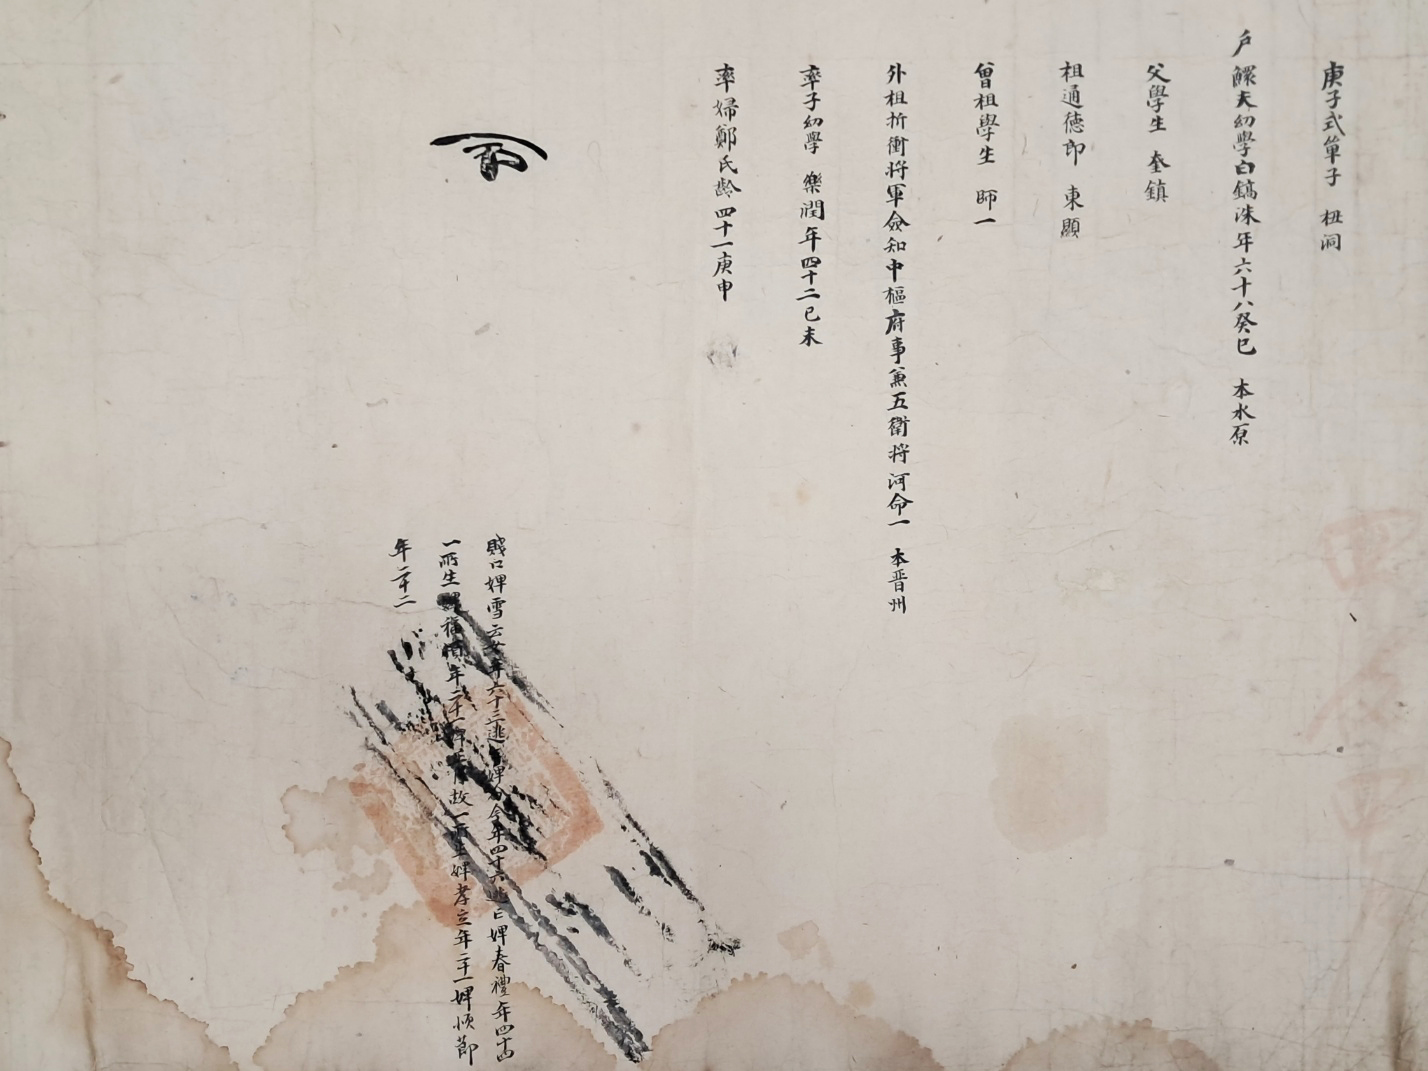 庚子式單子 杻洞
戶 鰥夫幼學白鎬洙年六十八癸巳 本水原
父學生 奎鎮
祖通德郎 東顯
曾祖學生 師一
外祖折衝將軍僉知中樞府事兼五衛將河命一 本晉州
率子幼學 樂潤年四十二己未
率婦鄭氏齡四十一庚申
賤口婢雪云女年六十三逃 婢 今年四十六逃亡婢春禮年四十四
一所生 年二十一婢 故一所生婢孝立年二十一婢順節
年二十二